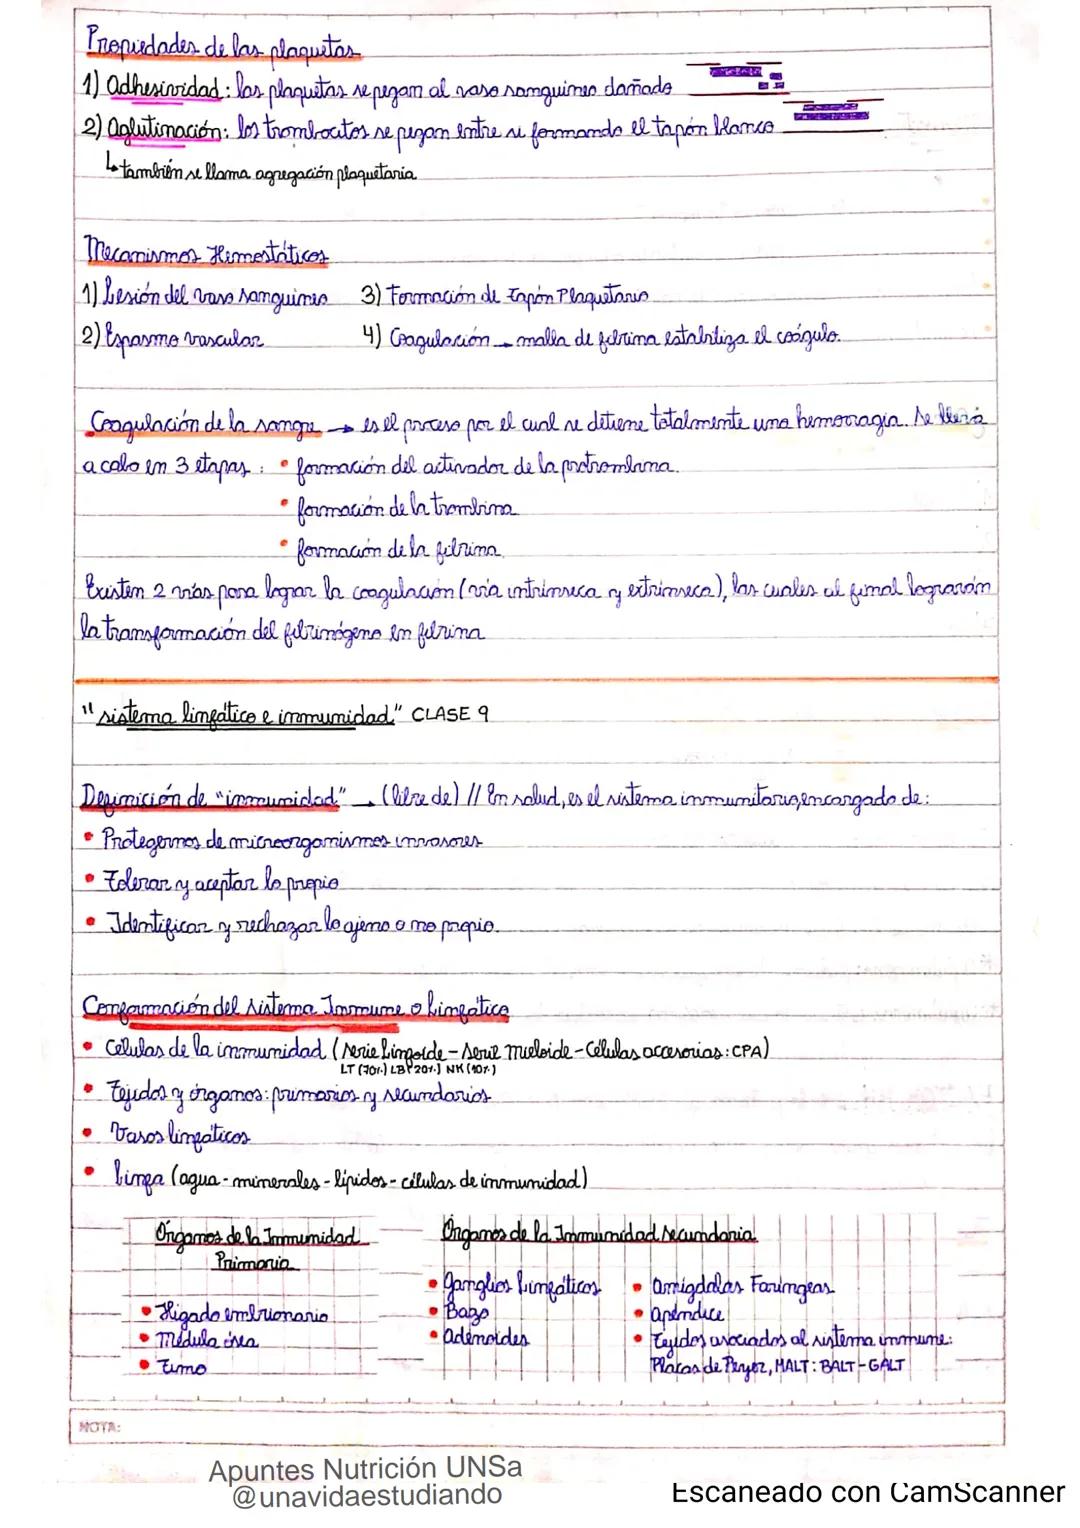 Propiedades de las plaquetas
1) Adhesividad: las plaquetas se pegan al vaso sanguineo dañado
2) Aglutinación: los trombocitos se pegan entre si formando el tapón blanco
↳ también se llama agregación plaquetaria
Mecanismos Hemostáticos
1) Lesión del vaso sanguineo 3) Formación de Tapón Plaquetario
2) Espasmo vascular 4) Coagulación → malla de fibrina estabiliza el coágulo.
Coagulación de la sangre → es el proceso por el cual se detiene totalmente una hemorragia. Se lleva
a cabo en 3 etapas: • formación del activador de la protrombina.
• formación de la trombina
• formación de la fibrina
Existen 2 vías para lograr la coagulación (vía intrinseca y extrinseca), las cuales al final lograrán
la transformación del fibrinógeno en fibrina
"sistema linfático e inmunidad" CLASE 9
Definición de "inmunidad" → (libre de) // En salud, es el sistema inmunitario, encargado de:
• Protegernos de microorganismos invasores
• Tolerar y aceptar lo propio
• Identificar y rechazar lo ajeno o no propio.
Conformación del sistema Inmune o Linfático
• Células de la inmunidad (serie Linfoide - Serie Mieloide - Células accesorias: CPA)
LT (70%) LB (20%) NK (10%)
• Tejidos y órganos: primarios y secundarios
• Vasos linfáticos
• Linfa (agua - minerales - lípidos - células de inmunidad)
Órganos de la Inmunidad
Primaria
• Higado embrionario
• Médula ósea
• Timo
Órganos de la Inmunidad secundaria
• Ganglios Linfáticos
• Bazo
• Adenoides
• Amigdalas Faringeas
• apéndice
• Tejidos asociados al sistema inmune:
Placas de Peyer, MALT: BALT - GALT
NOTA:
Apuntes Nutrición UNSa
@unavidaestudiando
Escaneado con CamScanner